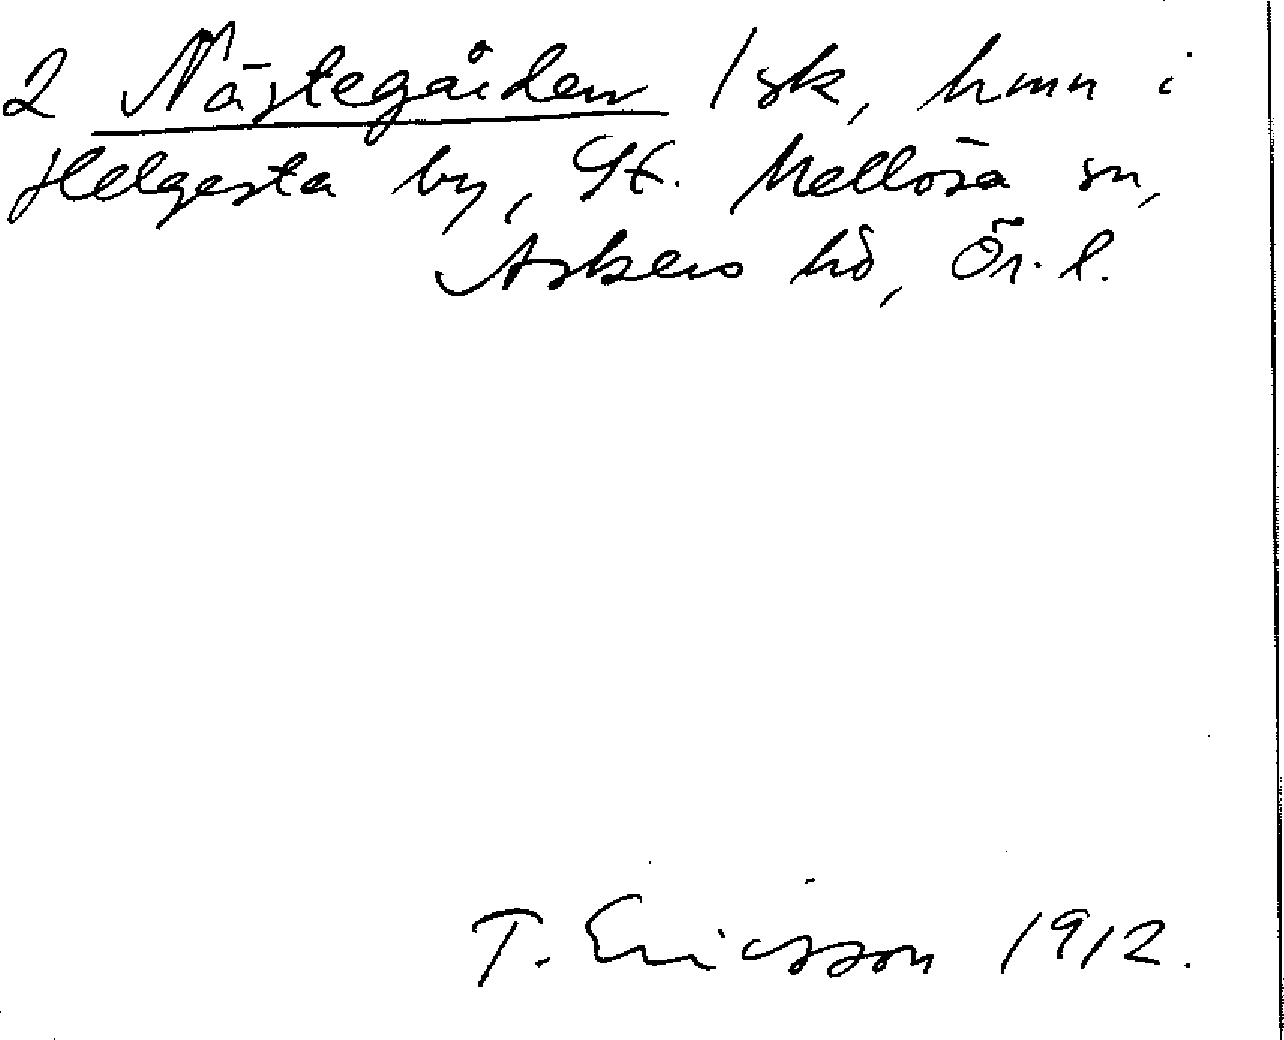 2 Nästegården 1 sk, hmn i
Helgesta by, St. Mellösa sn,
Askers hd, Ör. l.
T. Ericsson 1912.